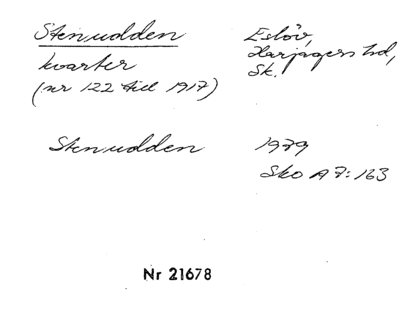 Stenudden Eslöv,
kvarter Harjagers hd,
(nr 122 till 1917) Sk.
Stenudden 1979
Sko A 7:163
Nr 21678